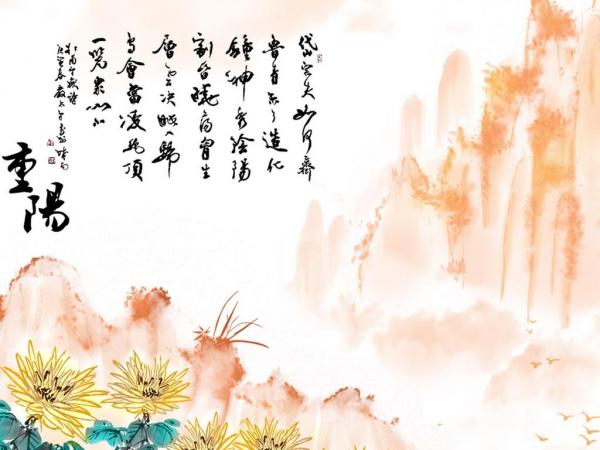 岱宗夫如何齊
魯青未了造化
鍾神秀陰陽
割昏曉蕩胸生
層雲決眥入歸
鳥會當凌絕頂
一覽眾山小
重陽